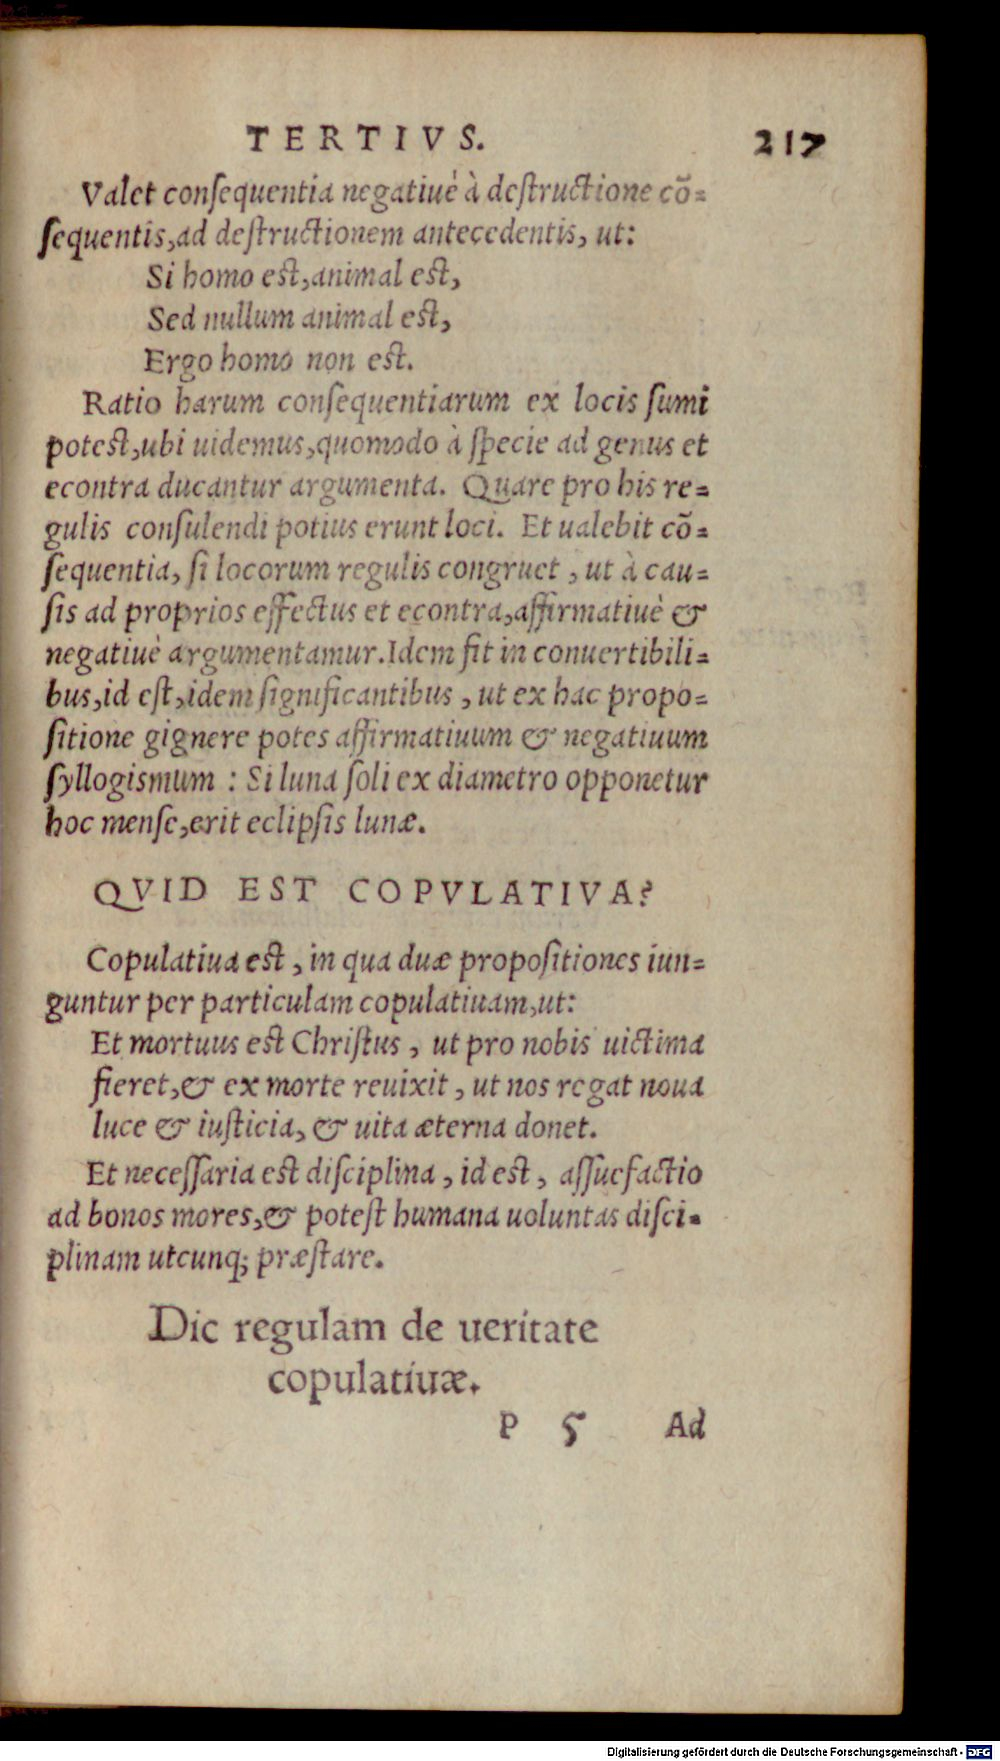 TERTIVS. 217
Valet conſequentia negatiuè à deſtructione cō-
ſequentis,ad deſtructionem antecedentis, ut:
Si homo eſt,animal eſt,
Sed nullum animal eſt,
Ergo homo non eſt.
Ratio harum conſequentiarum ex locis ſumi
poteſt,ubi uidemus,quomodo à ſpecie ad genus et
econtra ducantur argumenta. Quare pro his re-
gulis conſulendi potius erunt loci. Et ualebit cō-
ſequentia, ſi locorum regulis congruet, ut à cau-
ſis ad proprios effectus et econtra,affirmatiuè &
negatiuè argumentamur.Idem fit in conuertibili-
bus,id eſt,idem ſignificantibus, ut ex hac propo-
ſitione gignere potes affirmatiuum & negatiuum
ſyllogismum : Si luna ſoli ex diametro opponetur
hoc menſe,erit eclipſis lunæ.
QVID EST COPVLATIVA?
Copulatiua eſt, in qua duæ propoſitiones iun-
guntur per particulam copulatiuam,ut:
Et mortuus eſt Chriſtus, ut pro nobis uictima
fieret,& ex morte reuixit, ut nos regat noua
luce & iuſticia, & uita æterna donet.
Et neceſſaria eſt diſciplina, id eſt, aſſuefactio
ad bonos mores,& poteſt humana uoluntas diſci-
plinam utcunq; præſtare.
Dic regulam de ueritate
copulatiuæ.
P 5 Ad
Digitalisierung gefördert durch die Deutsche Forschungsgemeinschaft - DFG